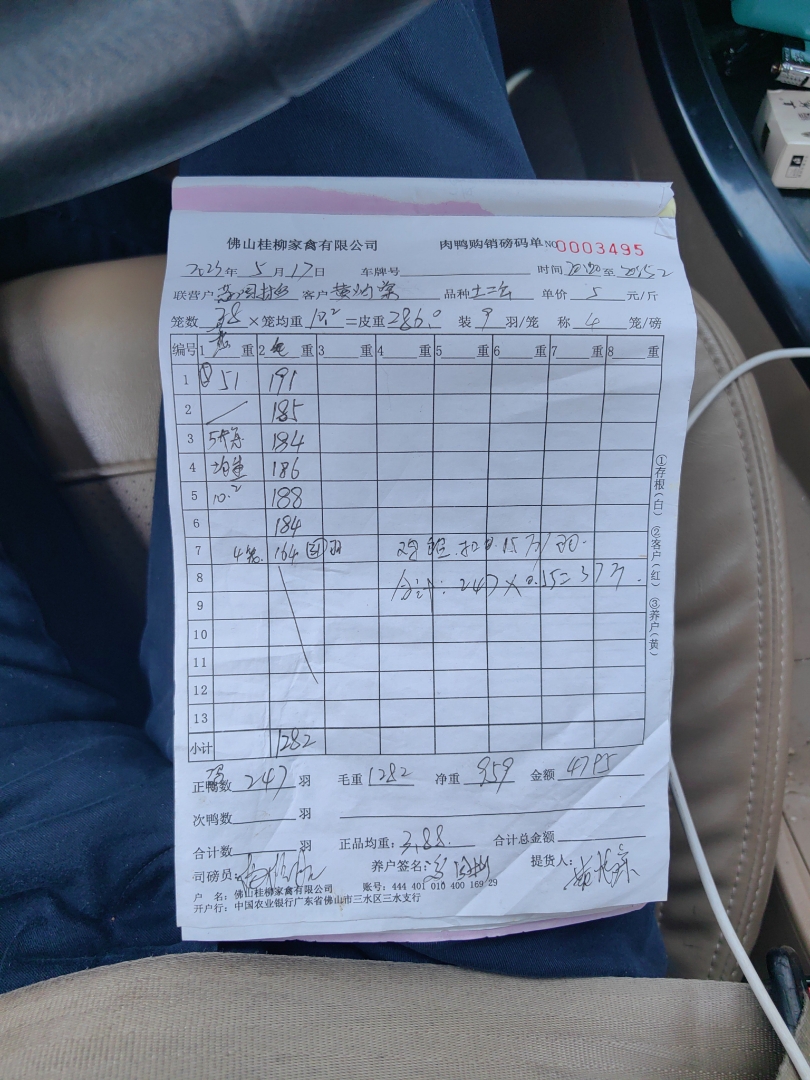 佛山桂柳家禽有限公司 肉鸭购销磅码单 NO 0003495
2025年 5 月 17 日 车牌号 时间 至
联营户 客户 品种 土二 单价 5 元/斤
笼数 28 ×笼均重 10.2 =皮重 286.0 装 9 羽/笼 称 4 笼/磅
编号 1 重 2 毛 重 3 重 4 重 5 重 6 重 7 重 8 重
1 ⑤ 51 191
2 185
3 184
4 均重 186
5 10.2 188
6 184
7 4笼 164
8 合计: 247 × 0.15 = 37
9
10
11
12
13
小计 1282
正鸭数 247 羽 毛重 1282 净重 959 金额 4795
次鸭数 羽
合计数 羽 正品均重: 3.88 合计总金额
司磅员: 养户签名: 提货人:
户 名: 佛山桂柳家禽有限公司 账号: 444 401 010 400 169 29
开户行: 中国农业银行广东省佛山市三水区三水支行
①存根(白) ②客户(红) ③养户(黄)